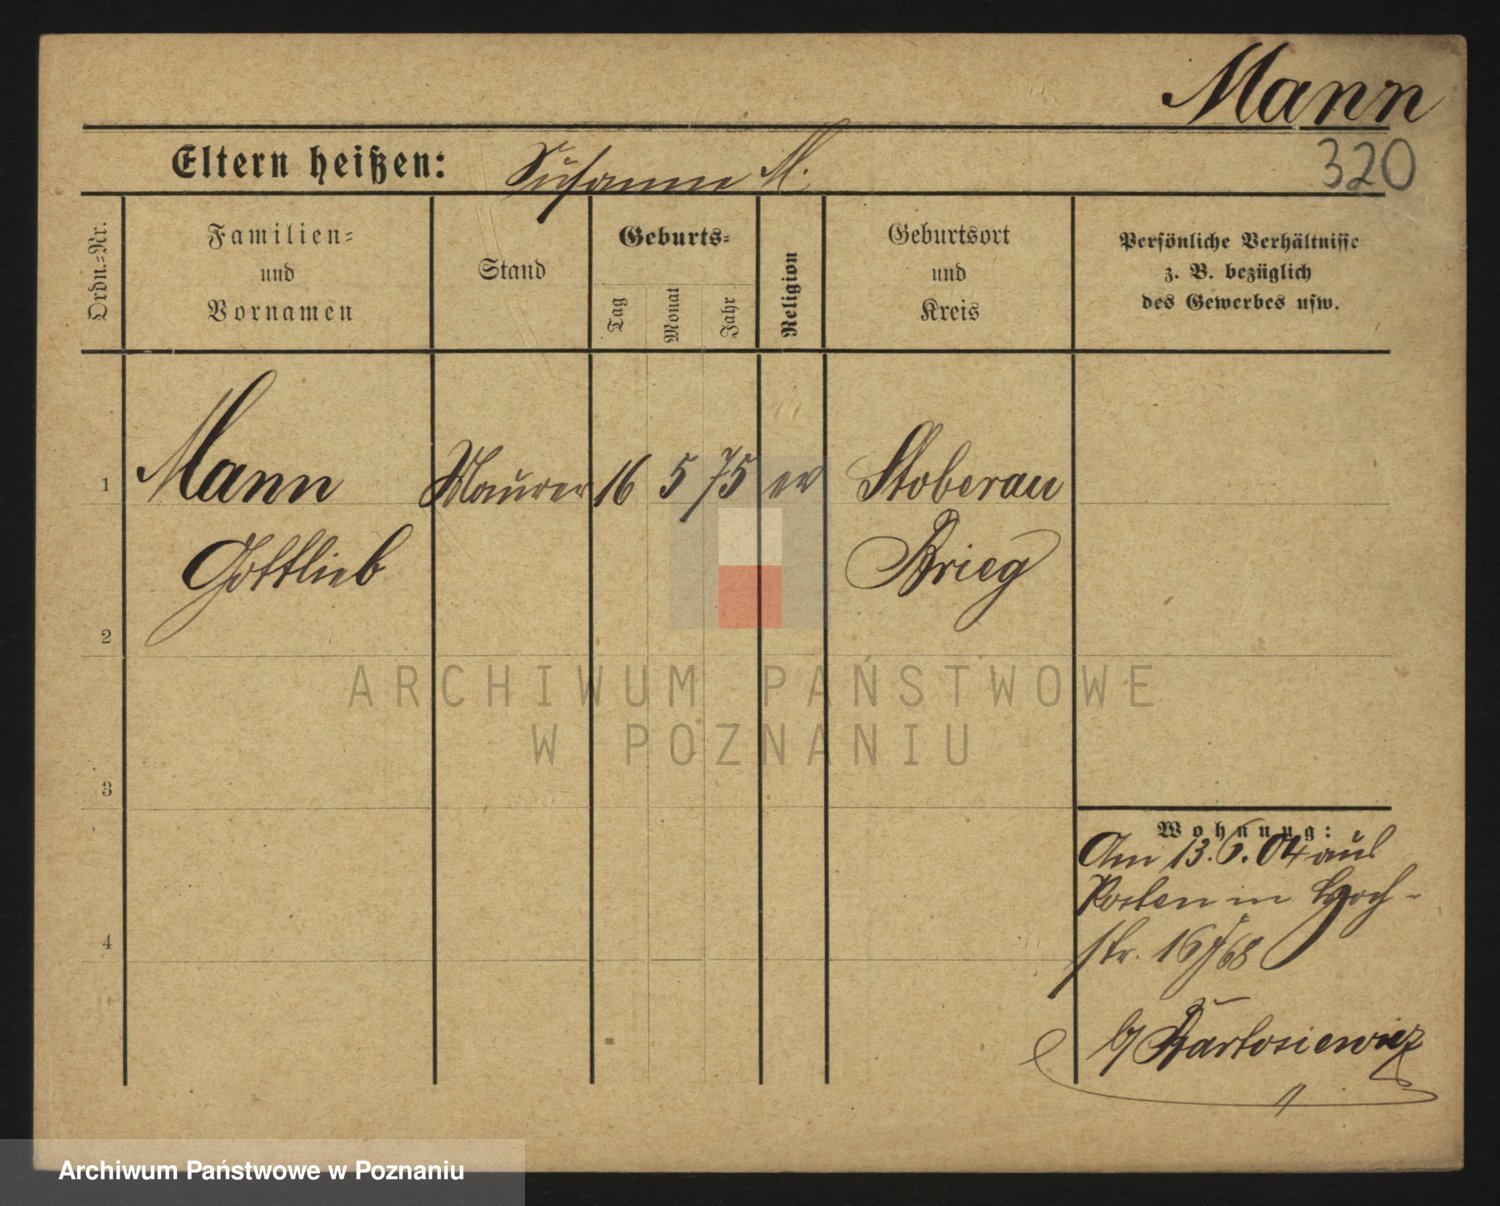 Mann
320
Eltern heißen: Susanne M.
Ordn.-Nr.
Familien-
und
Vornamen
Stand
Geburts-
Tag
Monat
Jahr
Religion
Geburtsort
und
Kreis
Persönliche Verhältnisse
z. B. bezüglich
des Gewerbes usw.
1 Mann Maurer 16 5 75 ev Stoberau
Gottlieb Brieg
2
ARCHIWUM PAŃSTWOWE
W POZNANIU
3
Wohnung:
Am 13. 6. 04 aus
Posten in Hoch-
4
str. 16/68
b/ Bartosiewicz
Archiwum Państwowe w Poznaniu